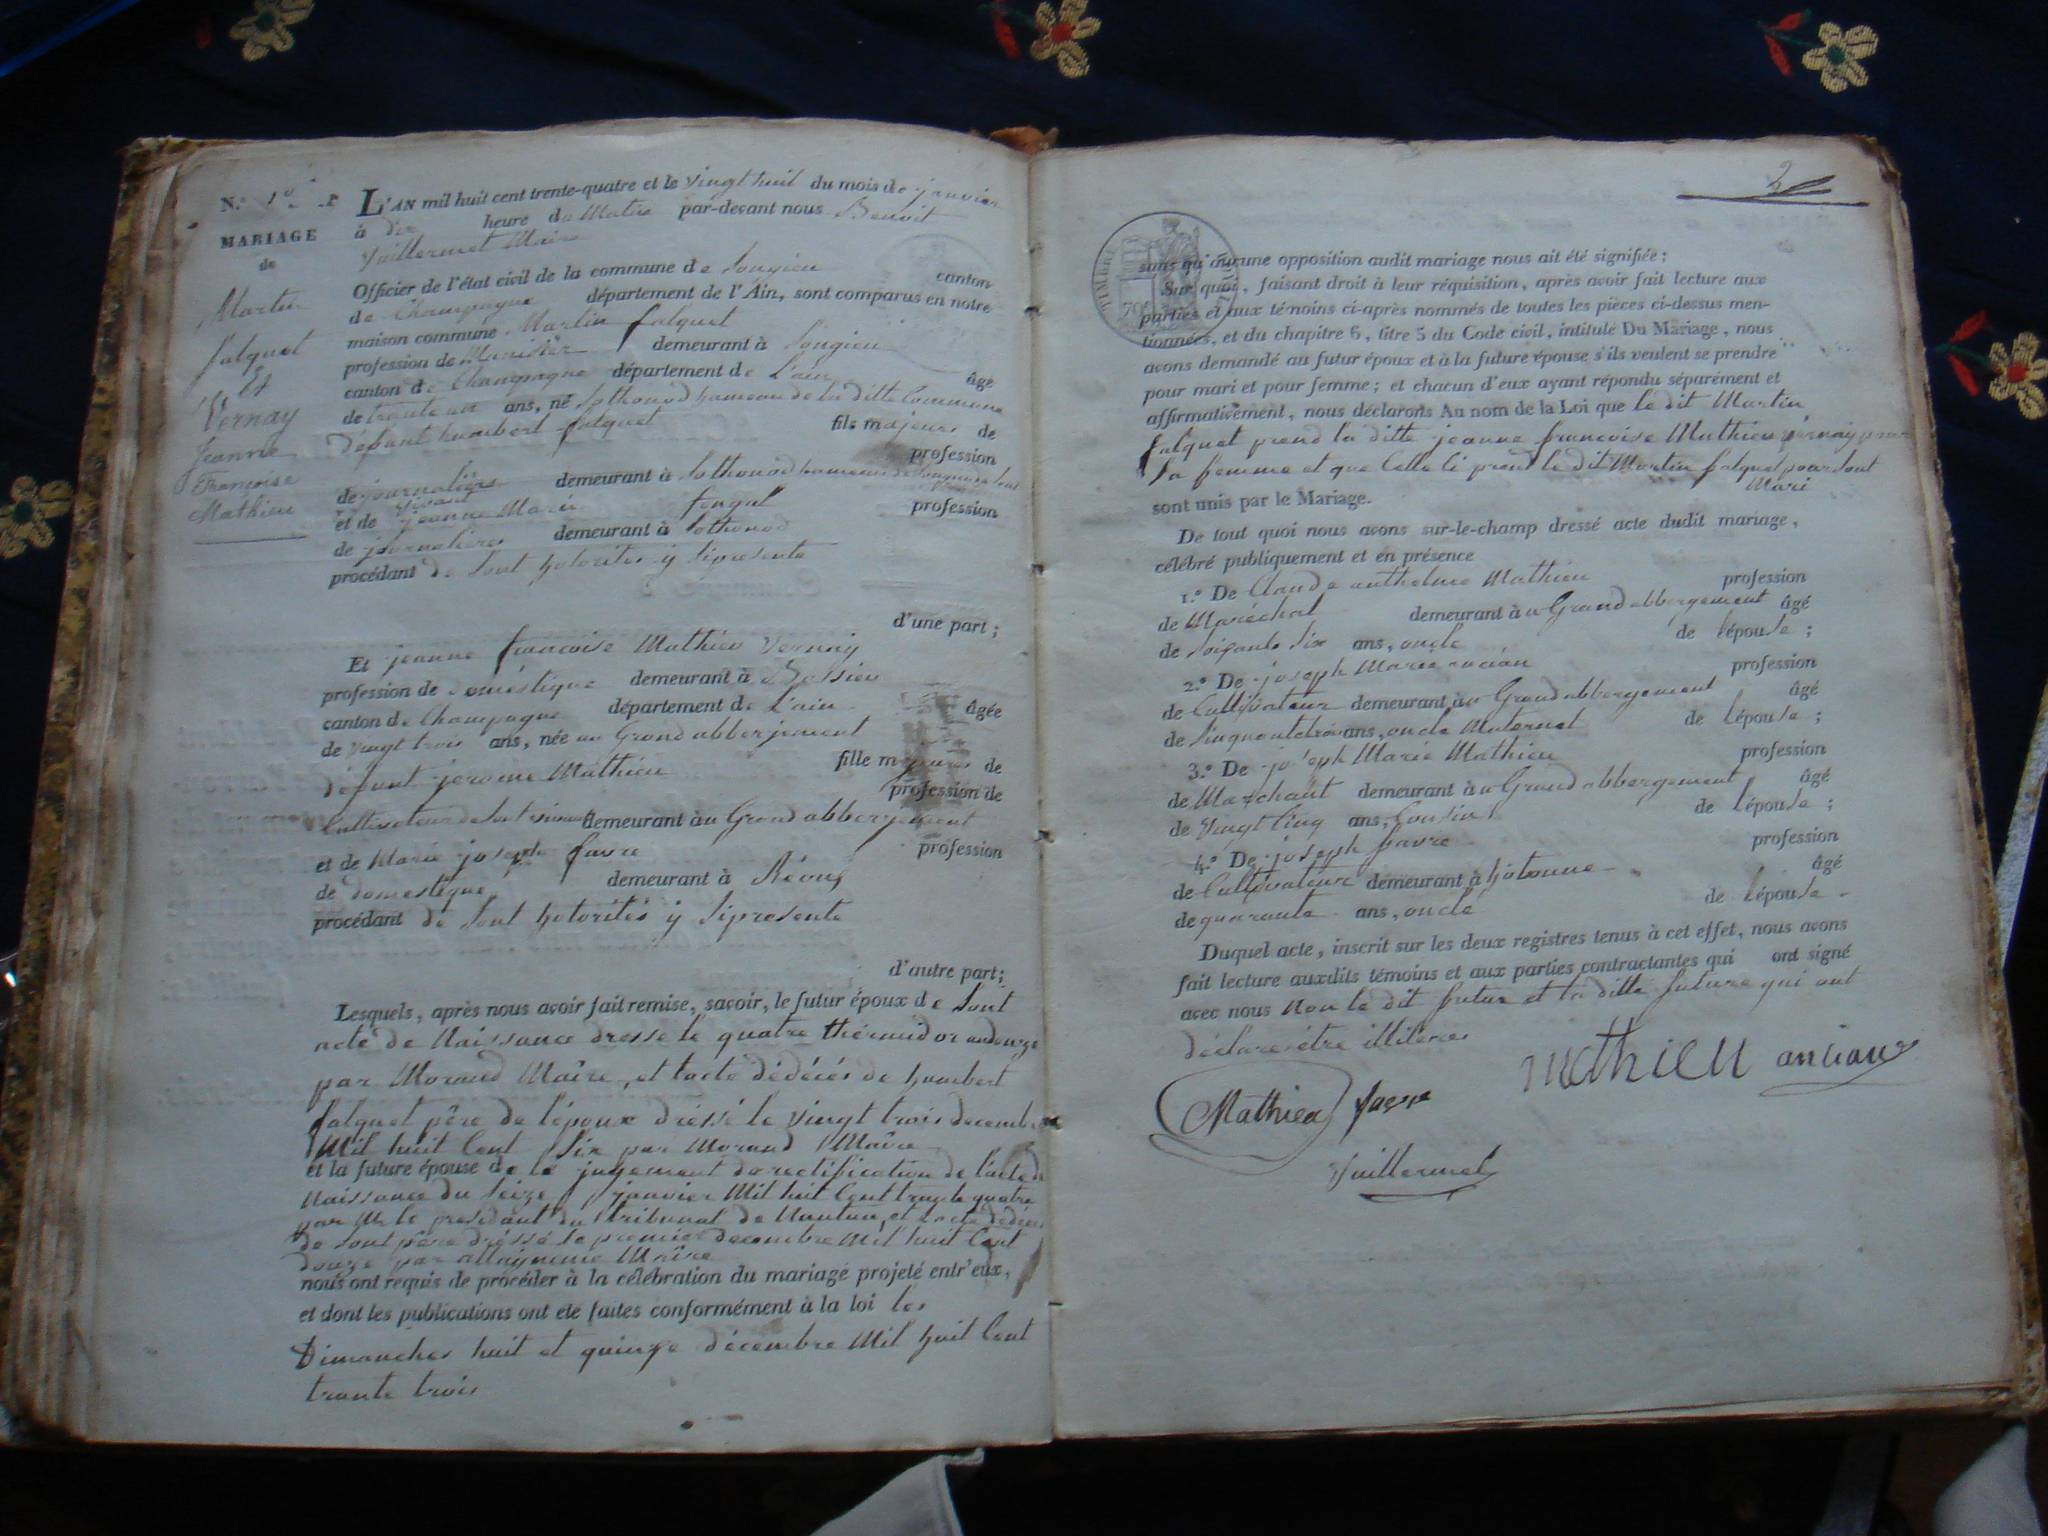 N.o 1er
MARIAGE
de
Martin
falquet
Et
Vernay
Jeanne
Françoise
Mathieu
L'AN mil huit cent trente-quatre et le vingt huit du mois de janvier
à dix heure du Matin par-devant nous Benoit
Vuillermet Maire
Officier de l'état civil de la commune de Songieu canton
de Champagne département de l'Ain, sont comparus en notre
maison commune Martin falquet
profession de demeurant à Songieu
canton de Champagne département de L'ain âgé
de trante un ans, né Sothonod hameau de la ditte Commune
défunt humbert falquet fils majeur de
profession
de journaliers demeurant à Sothonod hameau de
et de jeanne Marie profession
de journalieres demeurant à Sothonod
procédant de Sont hotorités y Sipresente
d'une part ;
Et jeanne francoise Mathieu Vernay
profession de domestique demeurant à Bossieu
canton de Champagne département de L'ain âgée
de vingt trois ans, née au Grand abberjement
défunt jerome Mathieu fille majeure de
profession de
Cultivateur de Sont vivant demeurant àu Grand abbergement
et de Marie joseph favre profession
de domestique demeurant à
procédant de Sont hotorités y Sipresente
d'autre part ;
Lesquels, après nous avoir fait remise, savoir, le futur époux de Sont
acte de Naissance dresse le quatre thérmidor an onze
par Morand Maire, et lacte dédécés de humbert
falquet père de l'époux dréssé le vingt trois decembre
Mil huit Cent Six par Morand Maire
et la future épouse de le jugement de rectification de l'acte de
Naissance du Seize janvier Mil huit Cent trante quatre
par Mr le president du tribunal de Nantua, et lacte dédécés
de Sont père dréssé le premier decembre Mil huit Cent
douze par Maire
nous ont requis de procéder à la célébration du mariage projeté entr'eux,
et dont les publications ont été faites conformément à la loi les
Dimanches huit et quinze décembre Mil huit Cent
trante trois
2
TIMBRE
ROYAL
70c
sans qu'aucune opposition audit mariage nous ait été signifiée ;
Sur quoi, faisant droit à leur réquisition, après avoir fait lecture aux
parties et aux témoins ci-après nommés de toutes les pièces ci-dessus men-
tionnées, et du chapitre 6, titre 5 du Code civil, intitulé Du Mariage, nous
avons demandé au futur époux et à la future épouse s'ils veulent se prendre
pour mari et pour femme ; et chacun d'eux ayant répondu séparément et
affirmativement, nous déclarons Au nom de la Loi que le dit Martin
falquet prend la ditte jeanne francoise Mathieu vernay pour
Sa femme et que Celle Ci prend le dit Martin falquet pour Sont
Mari
sont unis par le Mariage.
De tout quoi nous avons sur-le-champ dressé acte dudit mariage,
célébré publiquement et en présence
1.o De Claude anthelme Mathieu profession
de Maréchal demeurant àu Grand abbergement âgé
de Soixante Six ans, oncle de lépouse ;
2.o De joseph Marie ancian profession
de Cultivateur demeurant àu Grand abbergement âgé
de Sinquante trois ans, oncle Maternel de lépouse ;
3.o De joseph Marie Mathieu profession
de Marchant demeurant àu Grand abbergement âgé
de Vingt Cinq ans, Cousint de lépouse ;
4.o De joseph favre profession
de Cultivateur demeurant à hotonne âgé
de quarante ans, oncle de lépouse
Duquel acte, inscrit sur les deux registres tenus à cet effet, nous avons
fait lecture auxdits témoins et aux parties contractantes qui ont signé
avec nous Non le dit futur et la ditte future qui ont
déclaré être illiteres
mathieu ancian
Mathieu favre
Vuillermet